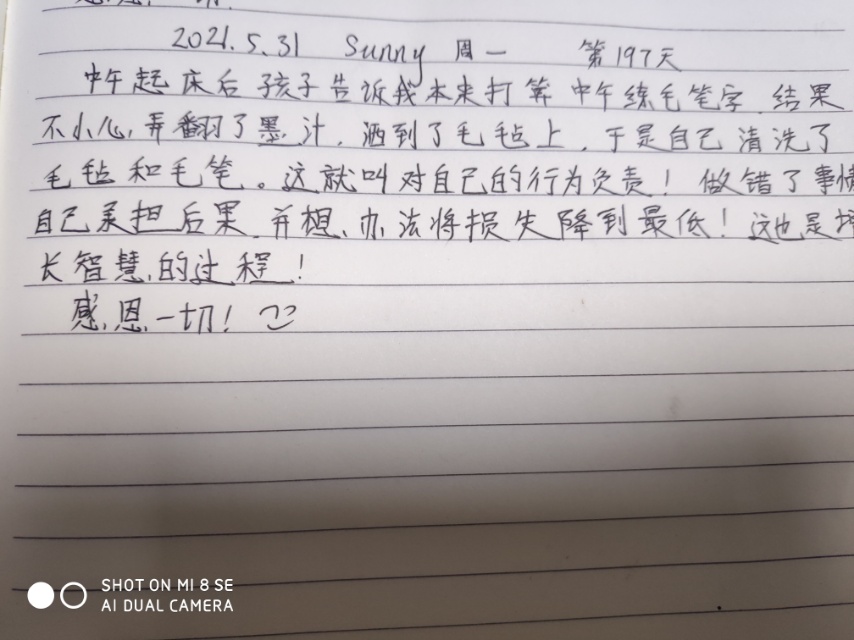 2021.5.31 Sunny 周一 第197天
中午起床后孩子告诉我本来打算中午练毛笔字.结果
不小心弄翻了墨汁,洒到了毛毡上,于是自己清洗了
毛毡和毛笔。这就叫对自己的行为负责!做错了事情
自己承担后果.并想办法将损失降到最低!这也是
长智慧的过程!
感恩一切!
SHOT ON MI 8 SE
AI DUAL CAMERA